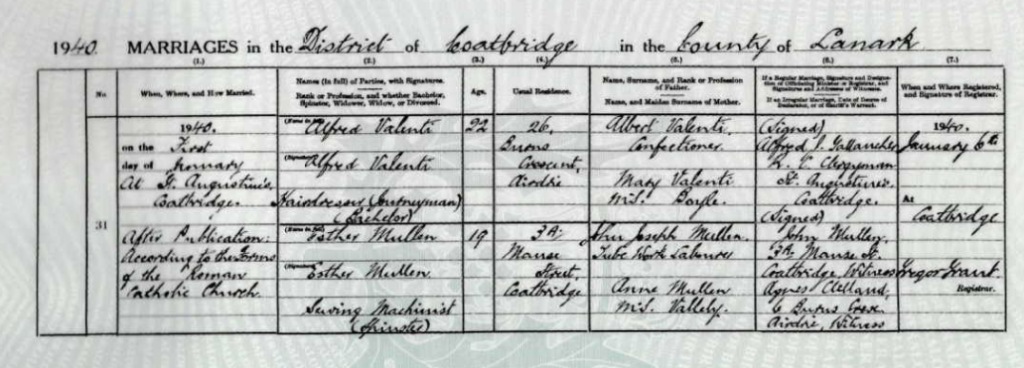 1940. MARRIAGES in the District of Coatbridge in the County of Lanark
(1.) (2.) (3.) (4.) (5.) (6.) (7.)
No.
When, Where, and How Married.
Names (in full) of Parties, with Signatures.
Rank or Profession, and whether Bachelor,
Spinster, Widower, Widow, or Divorced.
Age.
Usual Residence.
Name, Surname, and Rank or Profession
of Father.
Name, and Maiden Surname of Mother.
If a Regular Marriage, Signature and Designation
of Officiating Minister or Registrar, and
Signatures and Addresses of Witnesses.
If an Irregular Marriage, Date of Decree of
Declarator, or of Sheriff's Warrant.
When and Where Registered,
and Signature of Registrar.
31
1940.
on the First
day of January
At St. Augustine's,
Coatbridge.
After Publication:
According to the Forms
of the Roman
Catholic Church.
(Name in full)
Alfred Valenti
(Signature)
Alfred Valenti
Hairdresser (Journeyman)
(Bachelor)
22
26,
Burns
Crescent,
Airdrie
Albert Valenti,
Confectioner.
Mary Valenti
m.s. Boyle.
(Signed)
Alfred J. Gallaucher
R. C. Clergyman
St. Augustine's.
Coatbridge.
(Name in full)
Esther Mullen
(Signature)
Esther Mullen
Sewing Machinist
(Spinster)
19
3A,
Manse
Street,
Coatbridge
John Joseph Mullen,
Tube Work Labourer
Anne Mullen
m.s. Vallely.
(Signed)
John Mullen,
3A, Manse St.
Coatbridge, Witness
Agnes Clelland,
6 Burns Cresc.
Airdrie, Witness
1940.
January 6th
At
Coatbridge
Gregor Grant.
Registrar.